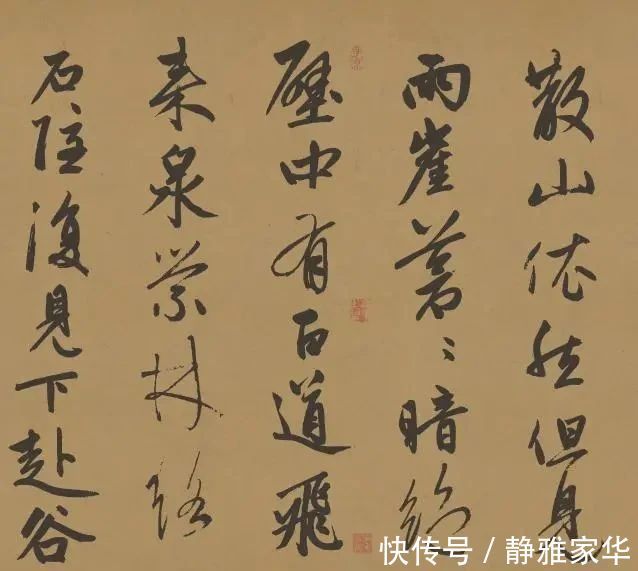 散山依然但見
兩崖蒼〻暗絕
壁中有百道飛
來泉縈林絡
石隱復見下赴谷
快传号 / 静雅家华